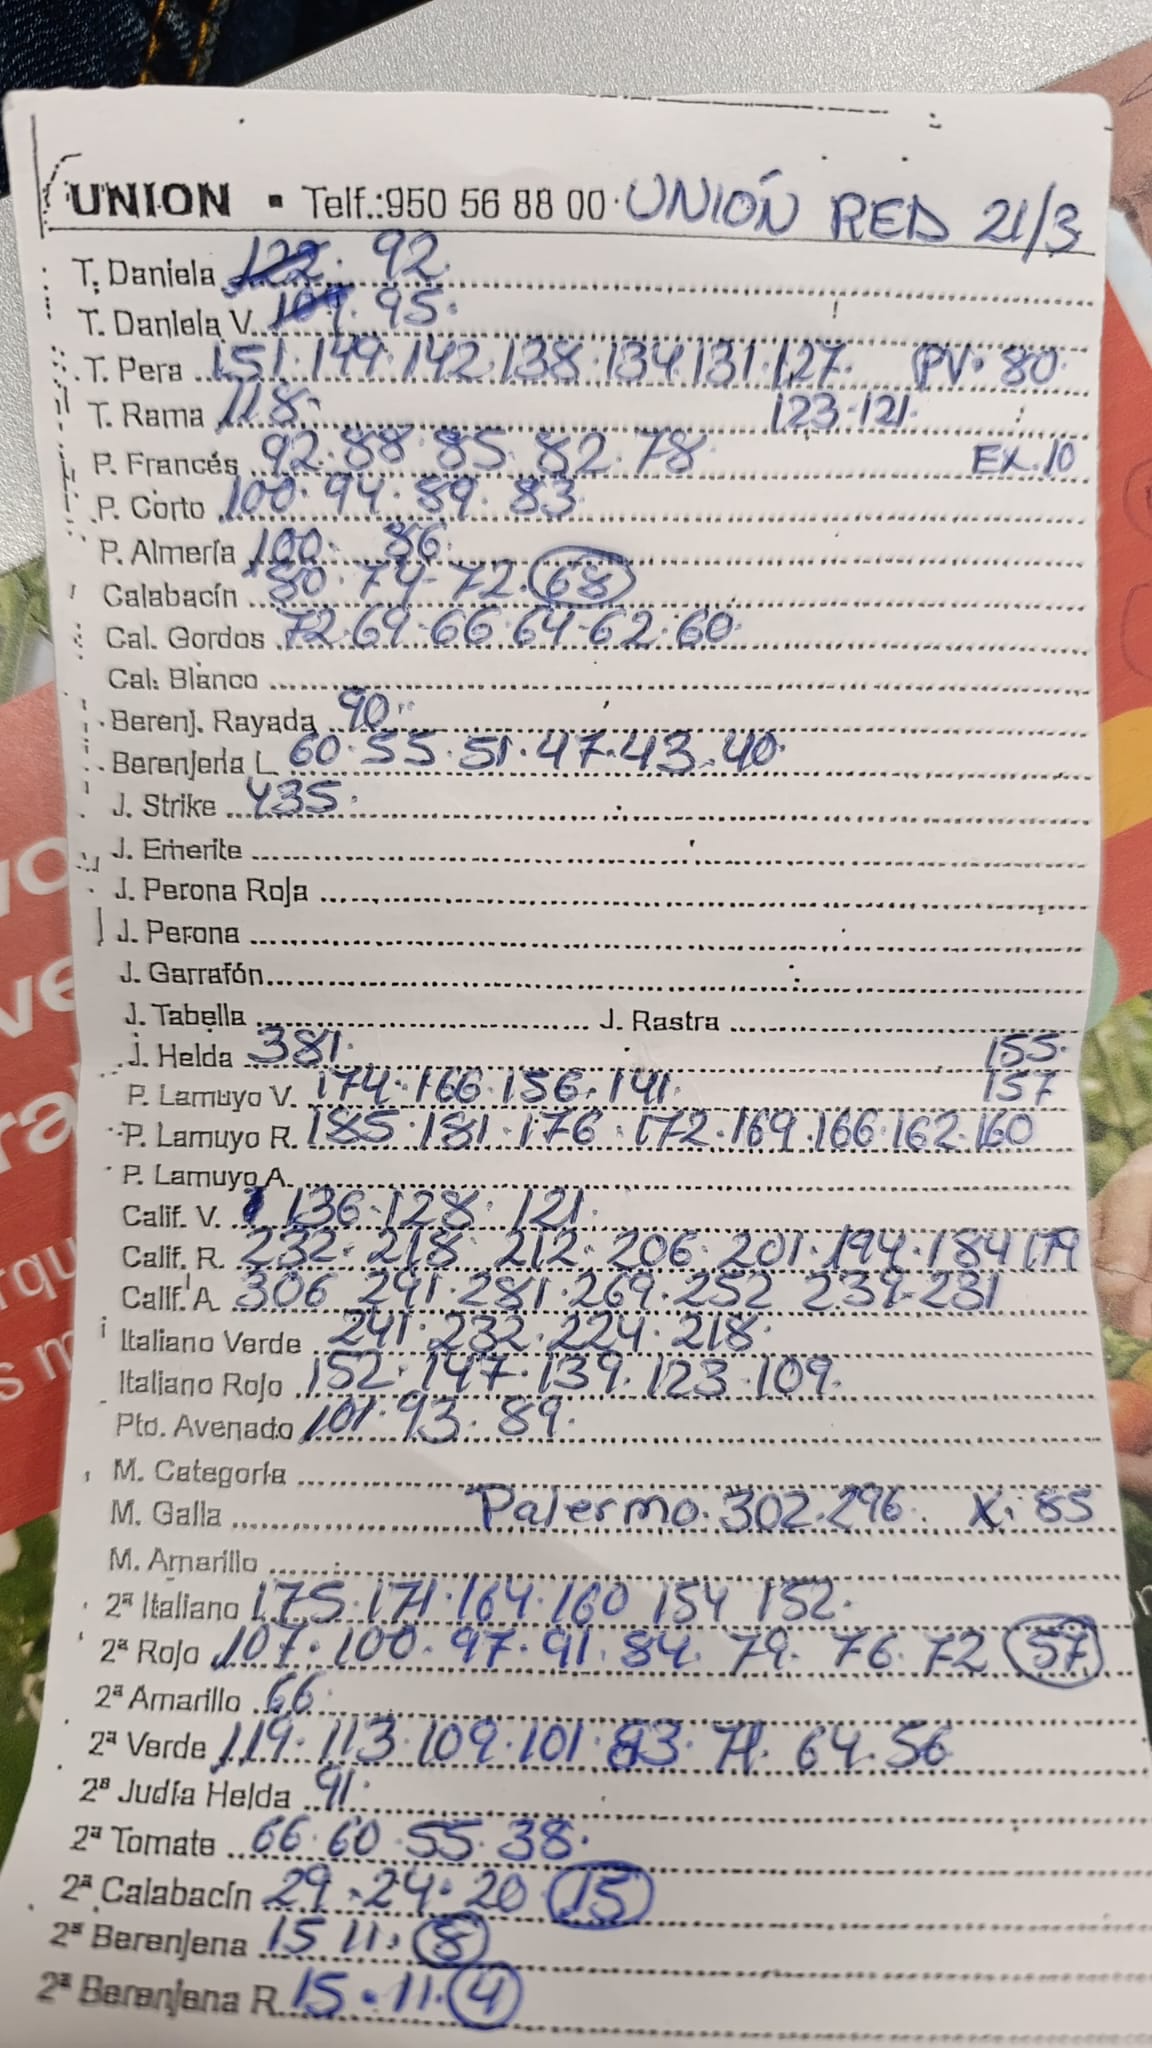 UNION ▪ Telf.:950 56 88 00 · UNIÓN RED 21/3
T. Daniela 122. 92.
T. Daniela V. 109. 95.
T. Pera 151.149.142.138.134.131.127. PV. 80.
T. Rama 118. 123.121.
P. Francés 92.88.85.82.78. EX.10
P. Corto 100.94.89.83
P. Almería 100. 86.
Calabacín 80.74-72.68
Cal. Gordos 72.69.66.64-62.60.
Cal. Blanco
Berenj. Rayada 90.
Berenjena L 60.55.51.47.43.40.
J. Strike 435.
J. Emerite
J. Perona Roja
J. Perona
J. Garrafón
J. Tabella J. Rastra
J. Helda 381. 155.
P. Lamuyo V. 174.166.156.141. 157
P. Lamuyo R. 185.181.176.172.169.166.162.160
P. Lamuyo A.
Calif. V. 136.128.121.
Calif. R. 232.218.212.206.201.194.184 179
Calif. A 306 291.281.269.252 239-231
Italiano Verde 241.232.224.218.
Italiano Rojo 152.147.139.123.109.
Pto. Avenado 101.93.89.
M. Categoría
M. Galla Palermo.302.296. X. 85
M. Amarillo
2ª Italiano 175.171.164.160 154 152.
2ª Rojo 107.100.97.91.84.79.76.72 57
2ª Amarillo 66.
2ª Verde 119.113.109.101.83.71.64.56
2ª Judía Helda 91.
2ª Tomate 66.60.55.38.
2ª Calabacín 29.24.20 15
2ª Berenjena 15 11. 8
2ª Berenjena R. 15.11. 4